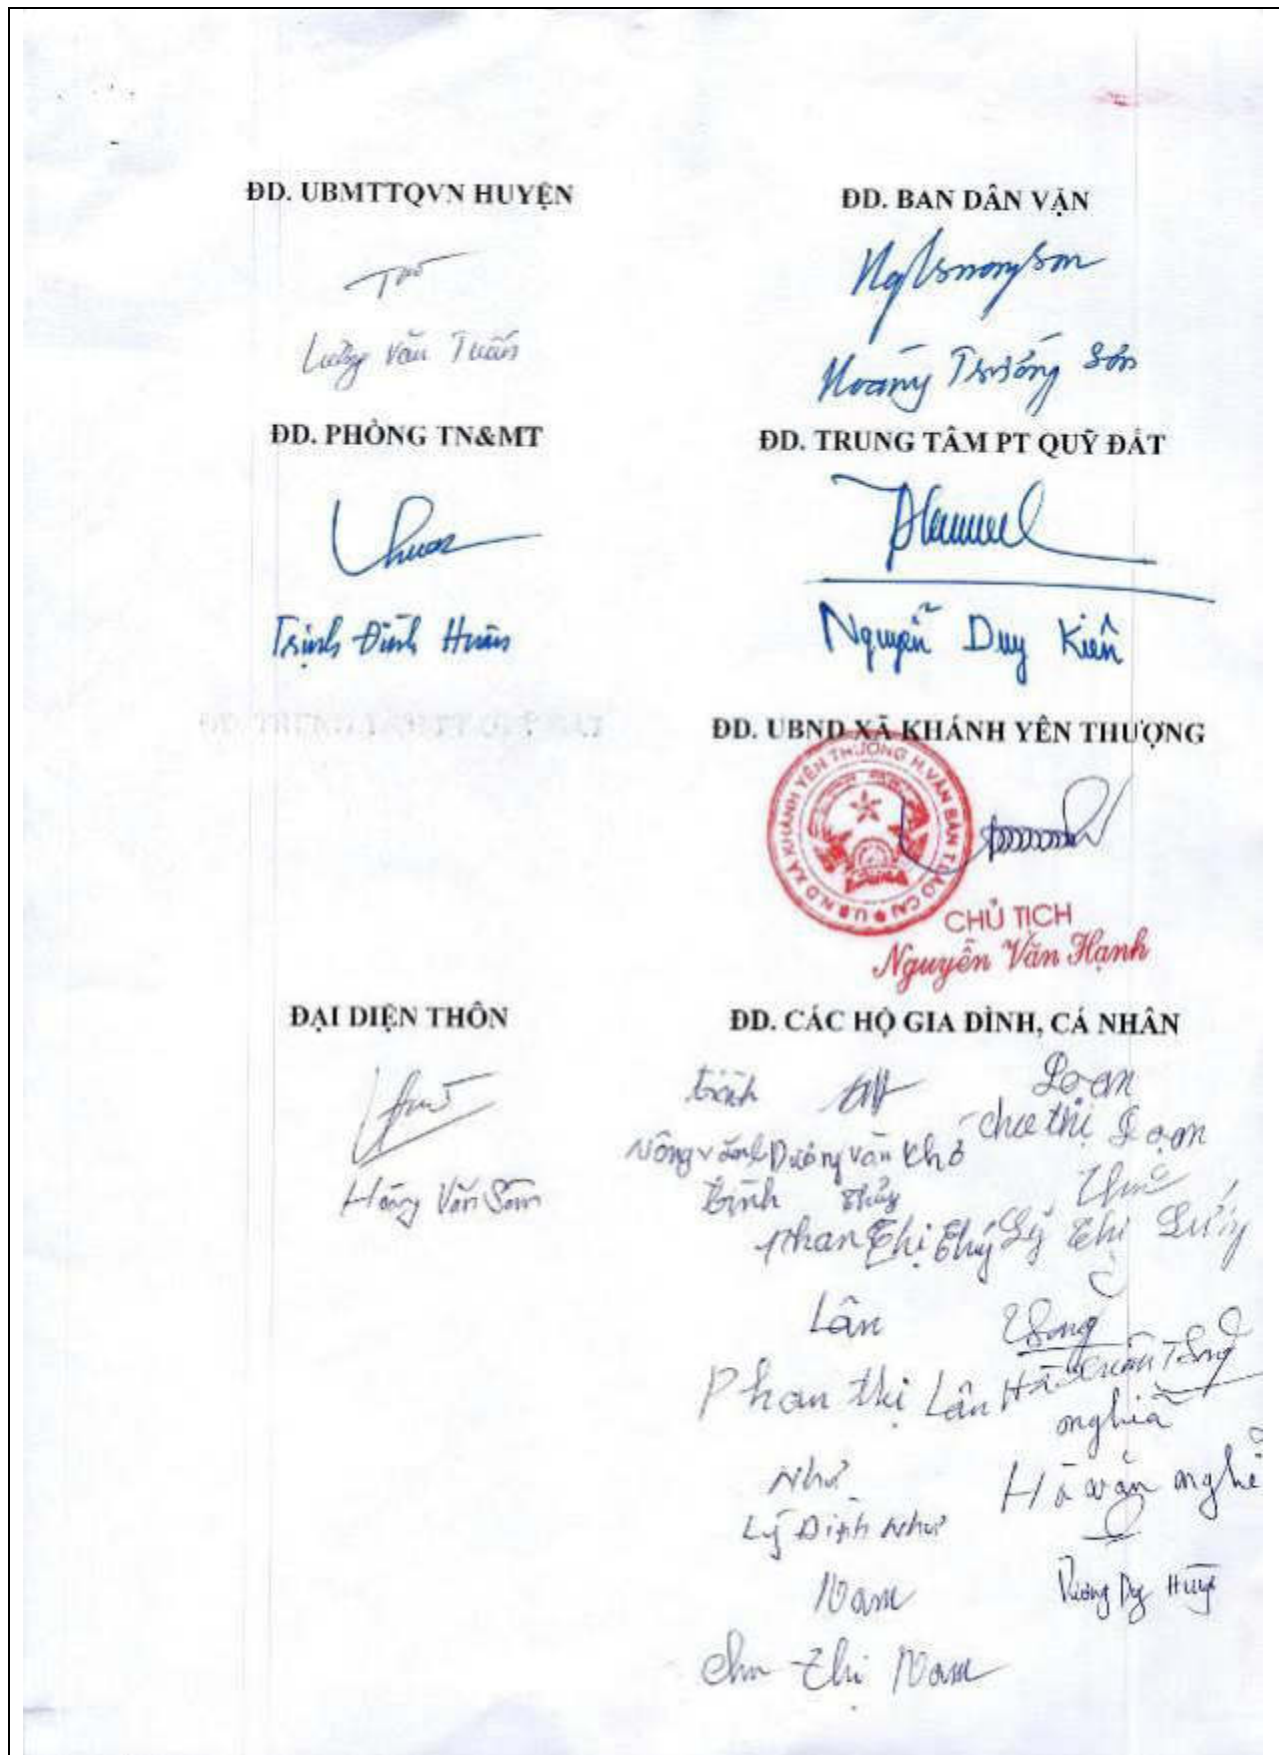 ĐD. UBMTTQVN HUYỆN
Lương Văn Tuấn
ĐD. BAN DÂN VẬN
Hoàng Trường Sơn
ĐD. PHÒNG TN&MT
Trịnh Đình Huân
ĐD. TRUNG TÂM PT QUỸ ĐẤT
Nguyễn Duy Kiên
ĐD. UBND XÃ KHÁNH YÊN THƯỢNG
U.B.N.D XÃ KHÁNH YÊN THƯỢNG H.VĂN BÀN T.LÀO CAI
CHỦ TỊCH
Nguyễn Văn Hạnh
ĐẠI DIỆN THÔN
Hoàng Văn
ĐD. CÁC HỘ GIA ĐÌNH, CÁ NHÂN
Nông Dương Văn Khở
Phan Thị Thủy Lý Thị
Lân
Phan thị Lân Hà Xuân
nghiã
Như
Lý Định Như
Hà văn
Nam
Chu Thị Nam